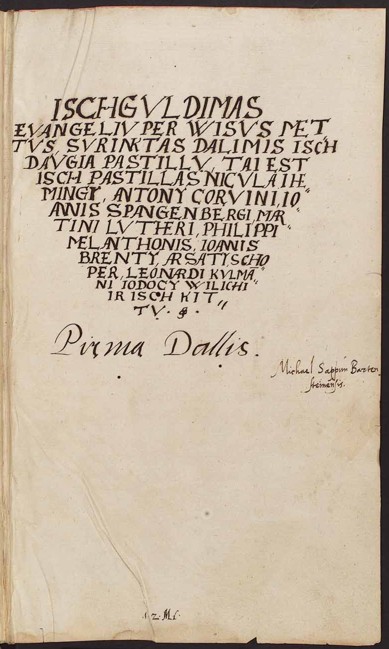 ISCHGULDIMAS
EUANGELIU PER WISUS MET
TUS, SURINKTAS DALIMIS ISCH
DAUGIA PASTILLU, TAI EST
ISCH PASTILLAS NICULAI HE
MINGY, ANTONY CORVINI, IO
ANNIS SPANGENBERGI, MAR
TINI LUTHERI, PHILIPPI
MELANTHONIS, IOANNIS
BRENTY, ARSATI, SCHO
PER, LEONARDI KULMA
NI IODOCY WILICHI
IR ISCH KIT
TU.
Pirma Dallis.
Michael Sappun Barten
steinensis.